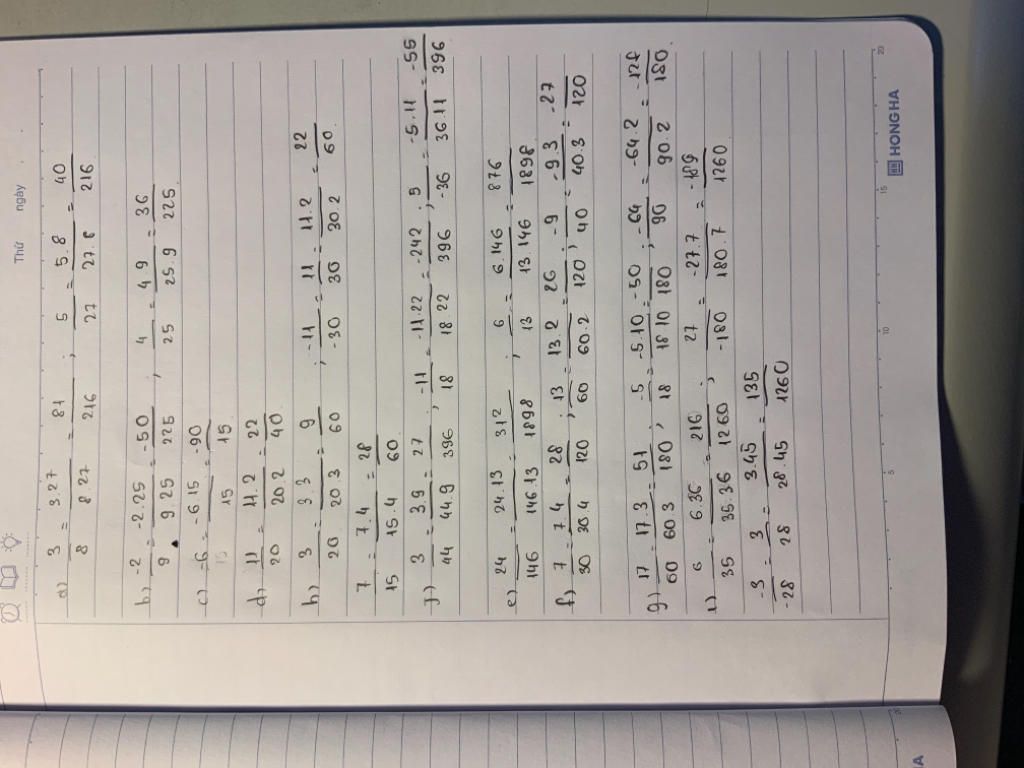 Thứ ngày
a) 3/8 = 3.27/8 27 = 81/216 ; 5/27 = 5.8/27.8 = 40/216
b) -2/9 = -2.25/9.25 = -50/225 , 4/25 = 4.9/25.9 = 36/225
c) -6 = -6.15/15 = -90/15
d) 11/20 = 11.2/20.2 = 22/40
h) 3/20 = 3.3/20.3 = 9/60 ; -11/-30 = 11/30 = 11.2/30.2 = 22/60.
7/15 = 7.4/15.4 = 28/60
j) 3/44 = 3.9/44.9 = 27/396 , -11/18 = -11.22/18.22 = -242/396 , 5/-36 = -5.11/36.11 = -55/396
e) 24/146 = 24.13/146.13 = 312/1898 , 6/13 = 6.146/13 146 = 876/1898
f) 7/30 = 7.4/30.4 = 28/120 ; 13/60 = 13.2/60.2 = 26/120 , -9/40 = -9.3/40.3 = -27/120
g) 17/60 = 17.3/60 3 = 51/180 , -5/18 = -5.10/18 10 = -50/180 ; -64/90 = -64.2/90.2 = -128/180.
6/35 = 6.36/35.36 = 216/1260 , 27/-180 = -27.7/180.7 = -189/1260
-3/-28 = 3/28 = 3.45/28.45 = 135/1260
5 10 15 20
HONG HA